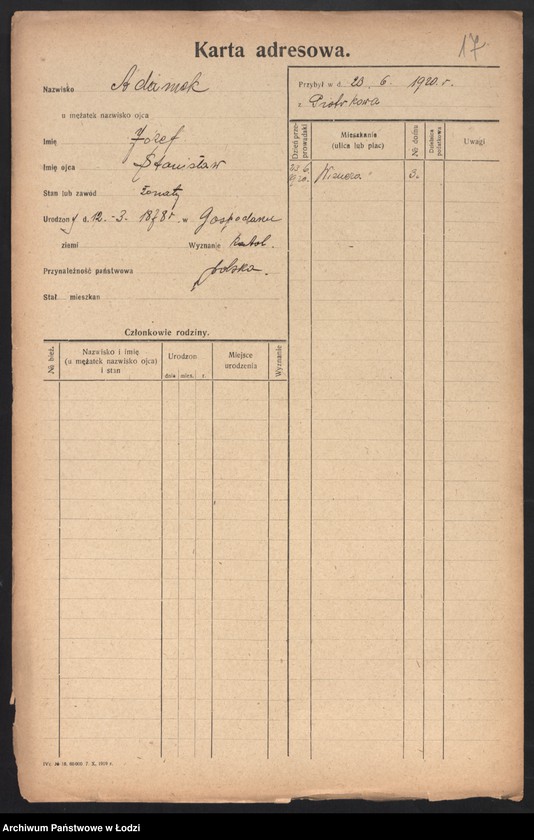 Karta adresowa.
17
Nazwisko Adamek
u mężatek nazwisko ojca
Imię Józef
Imię ojca Stanisław
Stan lub zawód żonaty
Urodzony d. 12.-3. 1878 r. w Gospodarz
ziemi Wyznanie katol.
Przynależność państwowa polska.
Stał. mieszkan
Przybył w d. 23. 6. 1920. r.
z Piotrkowa
Dzień przeprowadzki
Mieszkanie
(ulica lub plac)
Nr domu
Dzielnica podatkowa
Uwagi
23 6.
1920. 3.
Członkowie rodziny.
№ bież.
Nazwisko i imię
(u mężatek nazwisko ojca)
i stan
Urodzon
dnia mies. r.
Miejsce
urodzenia
Wyznanie
Archiwum Państwowe w Łodzi